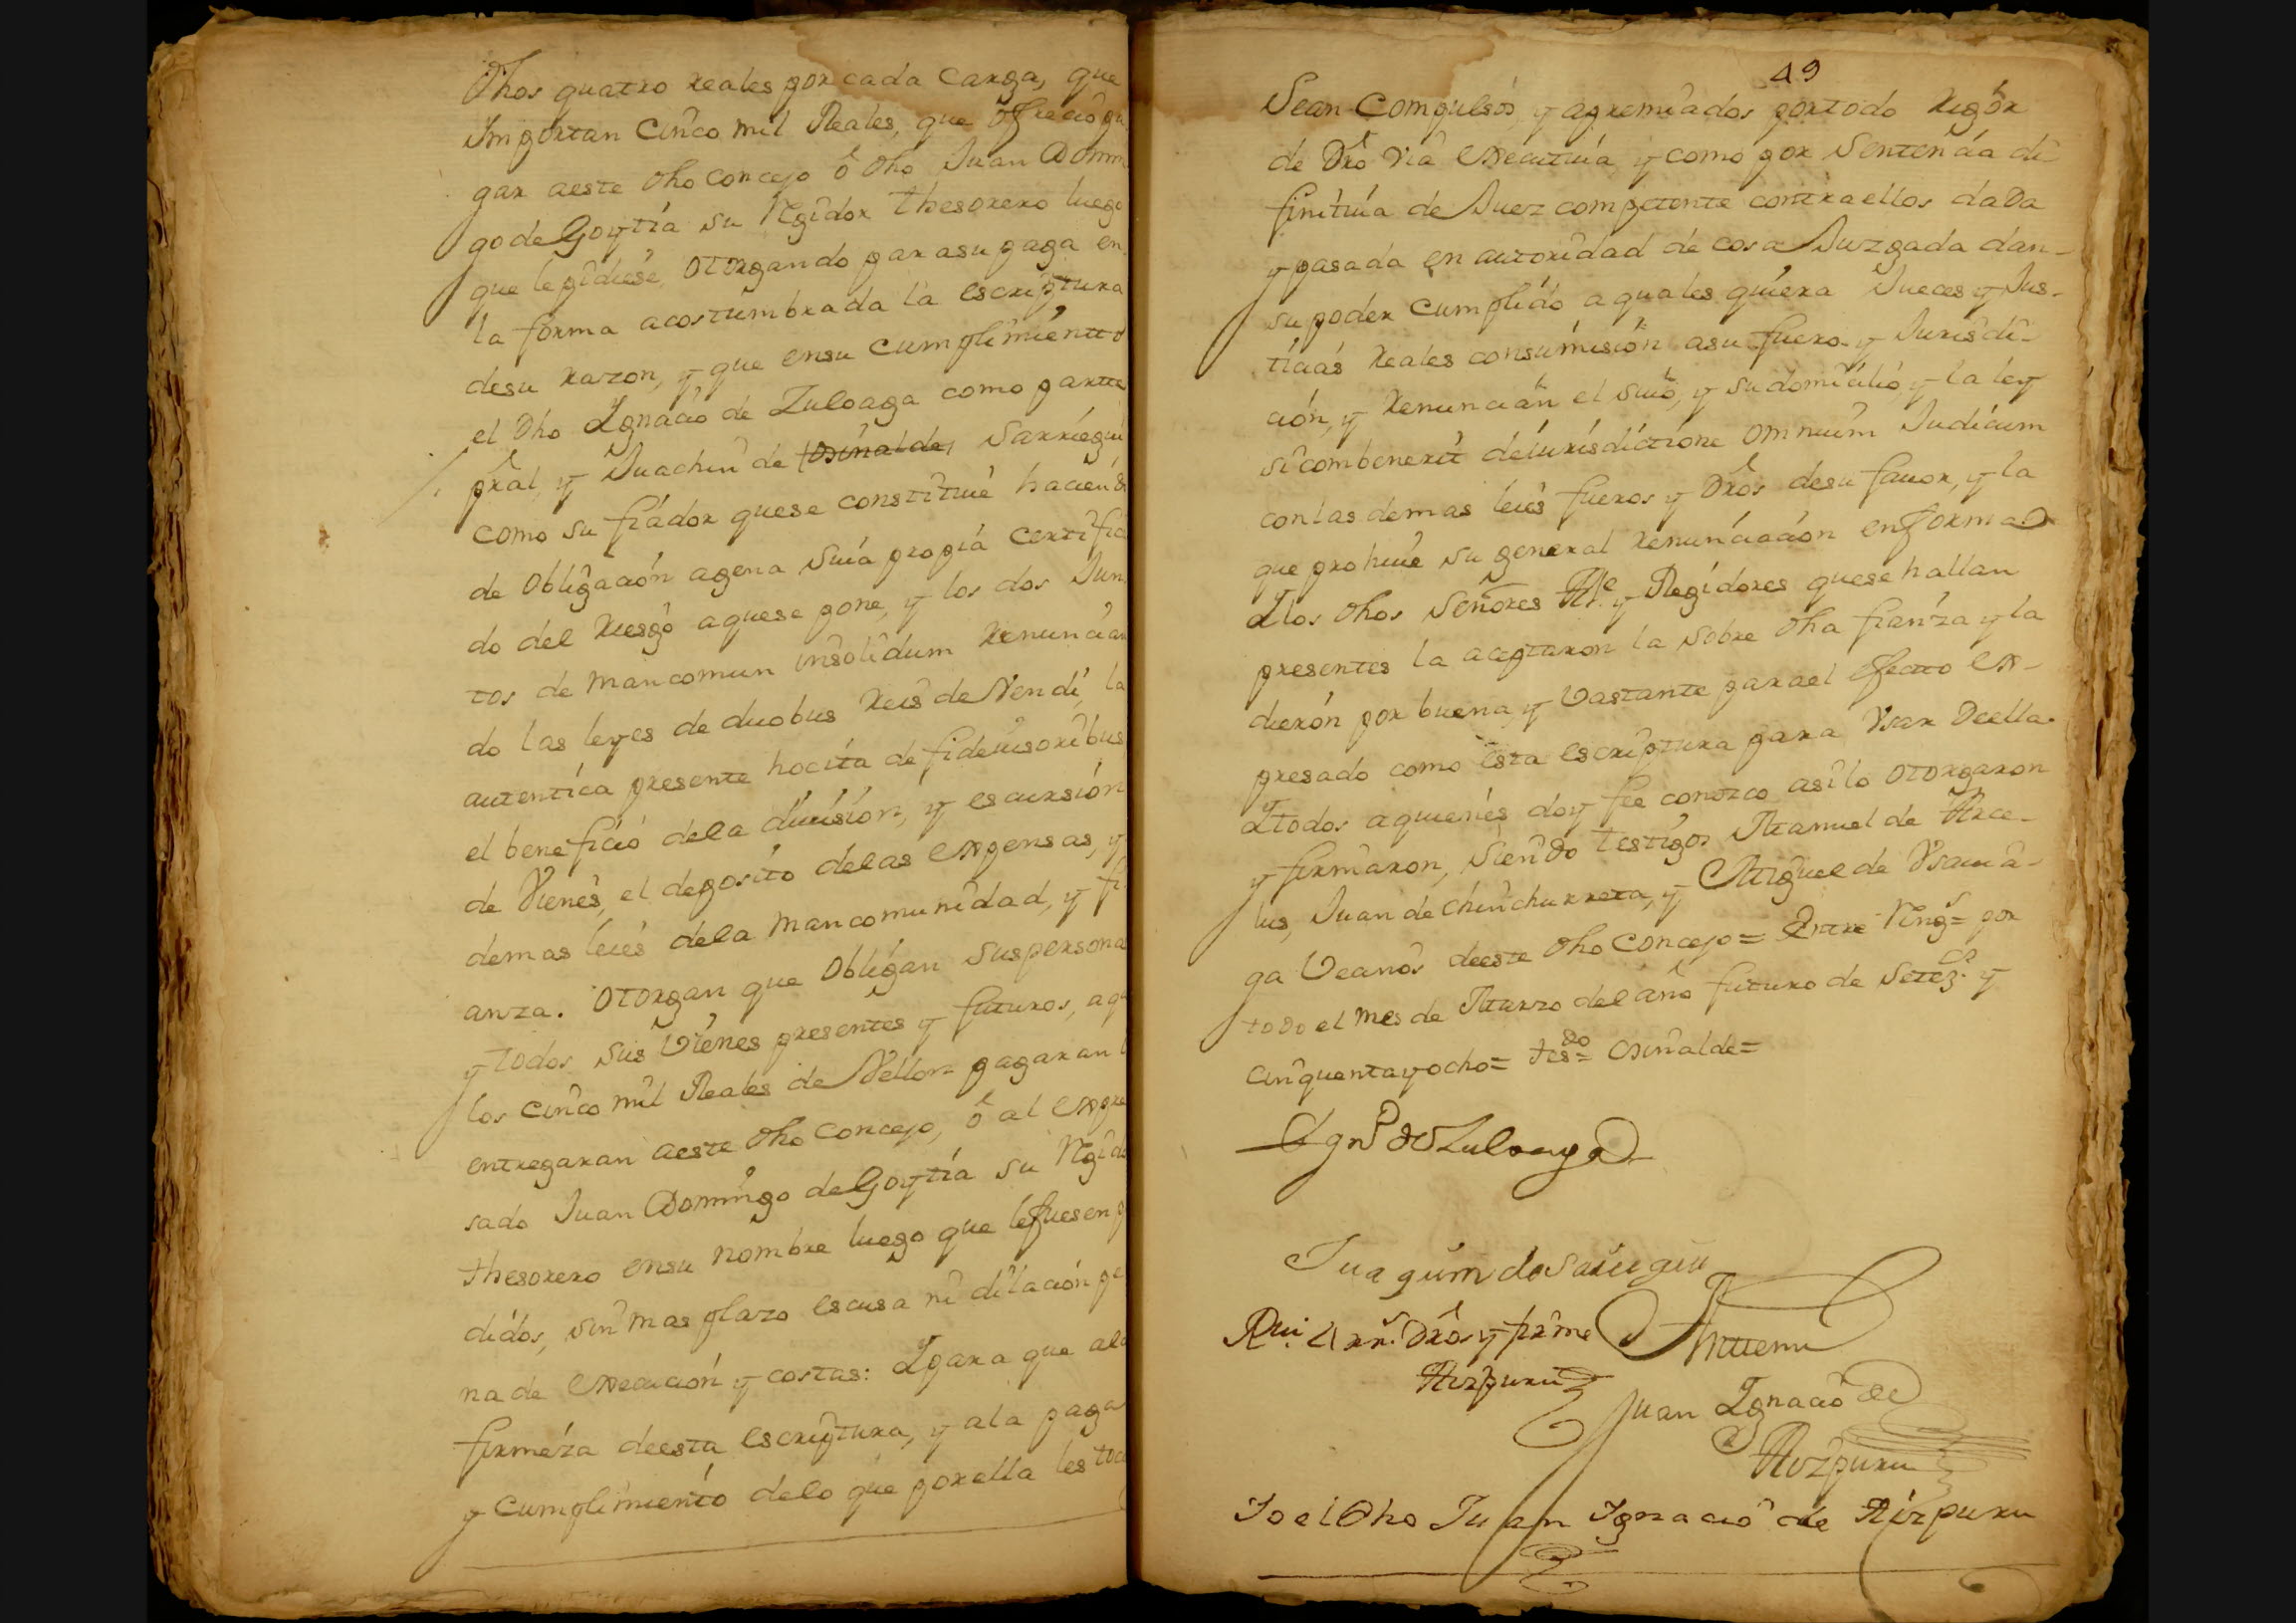 Dhos quatro reales por cada carga, que
Importan cinco mil Reales, que ofrecio pa
gar aeste dho concejo ô dho Juan Domin
go de Goytia su Regidor thesorero luego
que le pidiese, otorgando para su paga en
la forma acostumbrada la escriptura
desu razon, y que ensu cumplimientto
el dho Ygnacio de Zuloaga como partte
pral, y Juachin de Osinalde, Sarriegui
como su fiador quese constituie haciendo
de obligación agena suia propia certifica
do del riesgo aquese pone, y los dos Jun
tos de mancomun insolidum renuncian
do las leyes de duobus reis devendi, la
autentica presente hocita de fideiusoribus
el beneficio dela diuision, y escursión
de Vienes, el deposito delas expensas, y
demas leies dela mancomunidad, y fi
anza. Otorgan que obligan suspersona
y todos sus Vienes presentes y futuros, aq
los cinco mil Reales de Vellon pagaran
entregaran aeste dho concejo, ô al expre
sado Juan Domingo de Goytia su Regido
thesorero ensu nombre luego que lefuesen p
didos, sin mas plazo escusa ni dilación pe
na de execución y costas: Ypara que ala
firmeza deesta escriptura, y ala paga
y cumplimiento delo que porella les toca
49
Sean compulsos, y apremiados portodo rigor
de Dro via executiua, y como por sentencia di
finitiua de Juez competente contraellos dada
y pasada en autoridad de cosa Juzgada dan-
su poder cumplido aquales quiera Jueces y Jus-
ticias reales consumisión asu fuero y Jurisdi-
ción, y renuncian el suio, y su domicilio, y la ley
sicombenerit deiurisdictione omnium Judicum
conlas demas leies fueros y Dros desu fauor, y la
que prohiue su general renunciación enforma
Ylos dhos Señores Alce y Regidores quese hallan
presentes la aceptaron la sobre dha fianza y la
dieron por buena, y Vastante parael efectto ex-
presado como esta escriptura para Vsar deella.
Ytodos aquienes doy fee conozco asilo otorgaron
y firmaron, siendo testigos Manuel de Arce-
lus, Juan de chinchurreta, y Miguel de Vsauia-
ga Vecinos deeste dho concejo= Entre Rengs= por
todo el mes de Marzo del año futuro de setezs. y
cinquentayocho= tesdo= Osinalde=
Ygno de Zuloaga
Juaquim de Sariegui
Anttemi
Aizpuru
Juan Ygnacio de
Aizpuru
Yo el dho Juan Ygnacio de Aizpuru